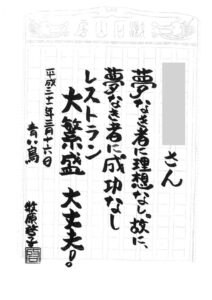 さん
夢なき者に理想なし。故に、
夢なき者に成功なし
レストラン
大繁盛 大丈夫。
平成三十一年三月十六日
青い鳥